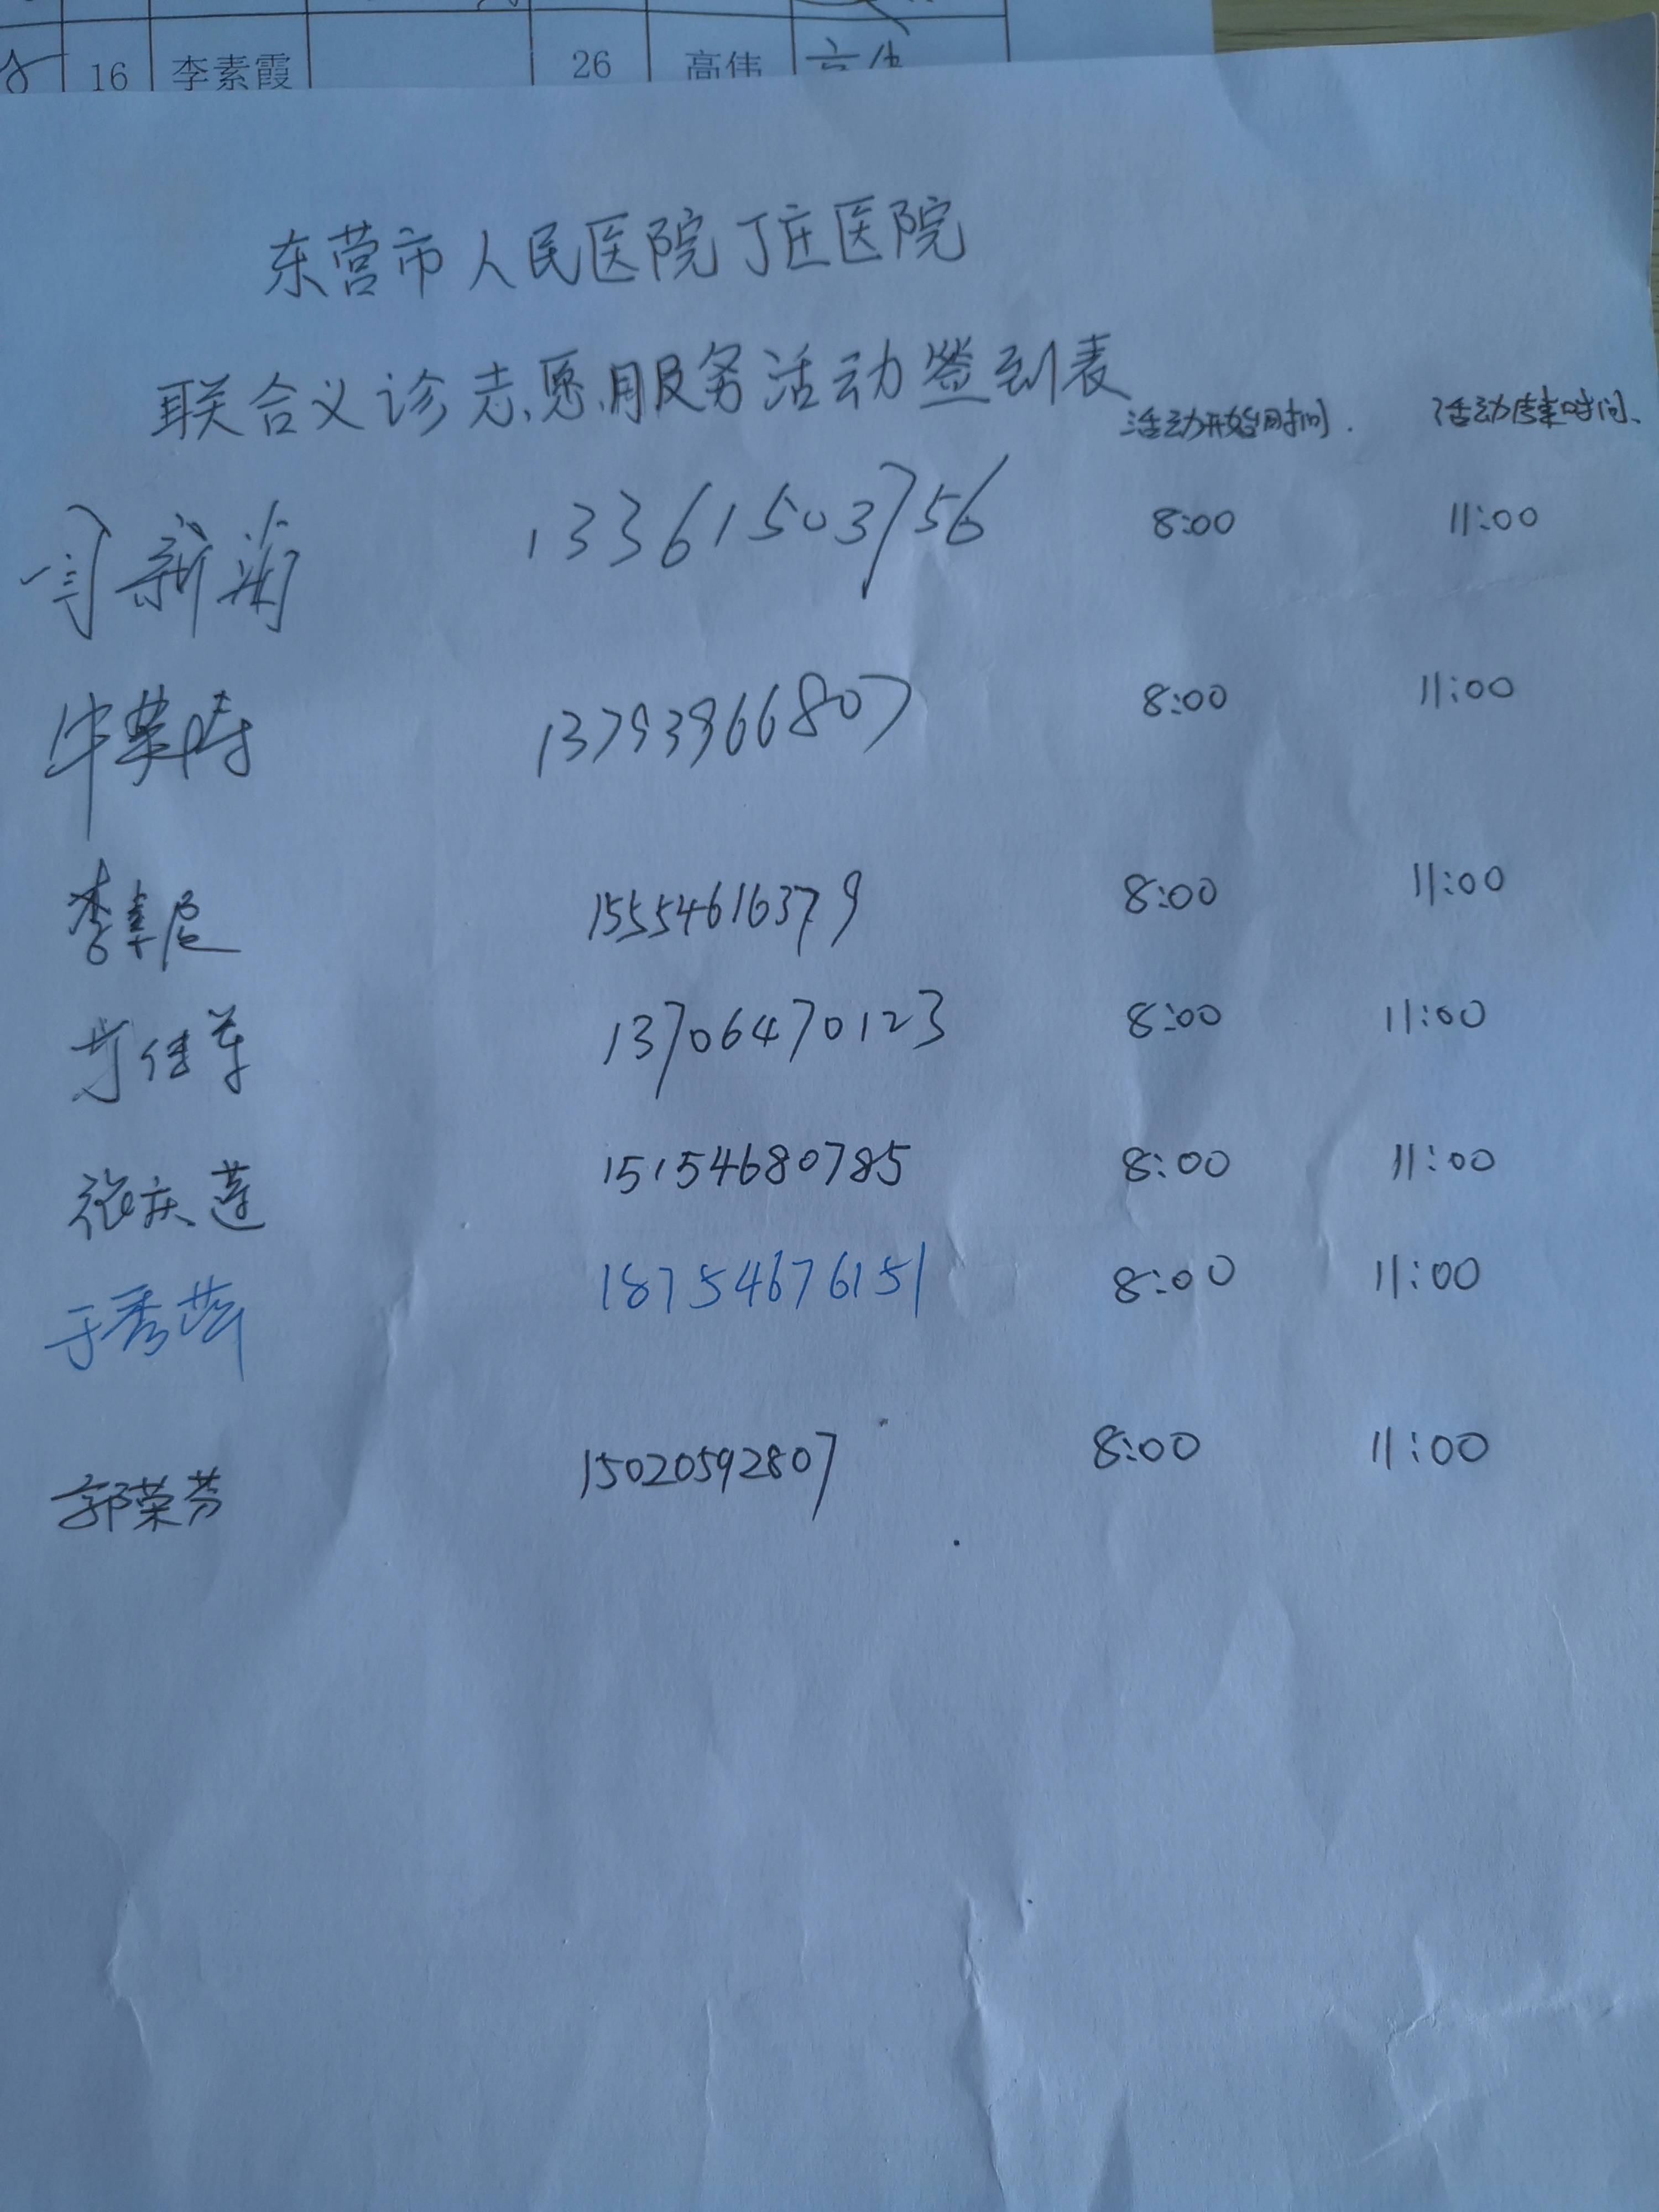 16 李素霞 26 高伟 高伟
东营市人民医院丁庄医院
联合义诊志愿服务活动签到表
活动开始时间. 活动结束时间、
新菊 13361503756 8:00 11:00
牛荣涛 13793966807 8:00 11:00
李卓尼 15554616379 8:00 11:00
13706470123 8:00 11:00
张庆莲 15154680785 8:00 11:00
于秀萍 18754676151 8:00 11:00
郭荣芬 15020592807 8:00 11:00